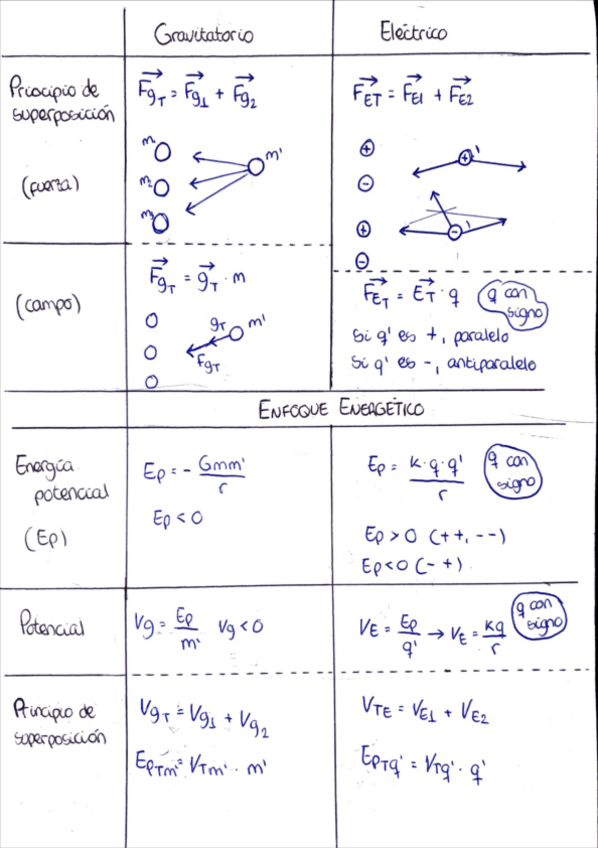 Gravitatorio
Eléctrico
Principio de
superposición
(fuerza)
FgT = Fg1 + Fg2
m1
m2
m3
m'
FET = FE1 + FE2
+
-
+
'
+
-
-
'
(campo)
FgT = gT · m
gT
m'
FgT
FET = ET · q
q con
signo
Si q' es +, paralelo
Si q' es -, antiparalelo
ENFOQUE ENERGÉTICO
Energía
potencial
(Ep)
Ep = - Gmm'
r
Ep < 0
Ep = K·q·q'
r
q con
signo
Ep > 0 (++, --)
Ep < 0 (- +)
Potencial
Vg = Ep
m'
Vg < 0
VE = Ep → VE = Kq
q'
r
q con
signo
Principio de
superposición
VgT = Vg1 + Vg2
EpTm' = VTm' · m'
VTE = VE1 + VE2
EpTq' = VTq' · q'